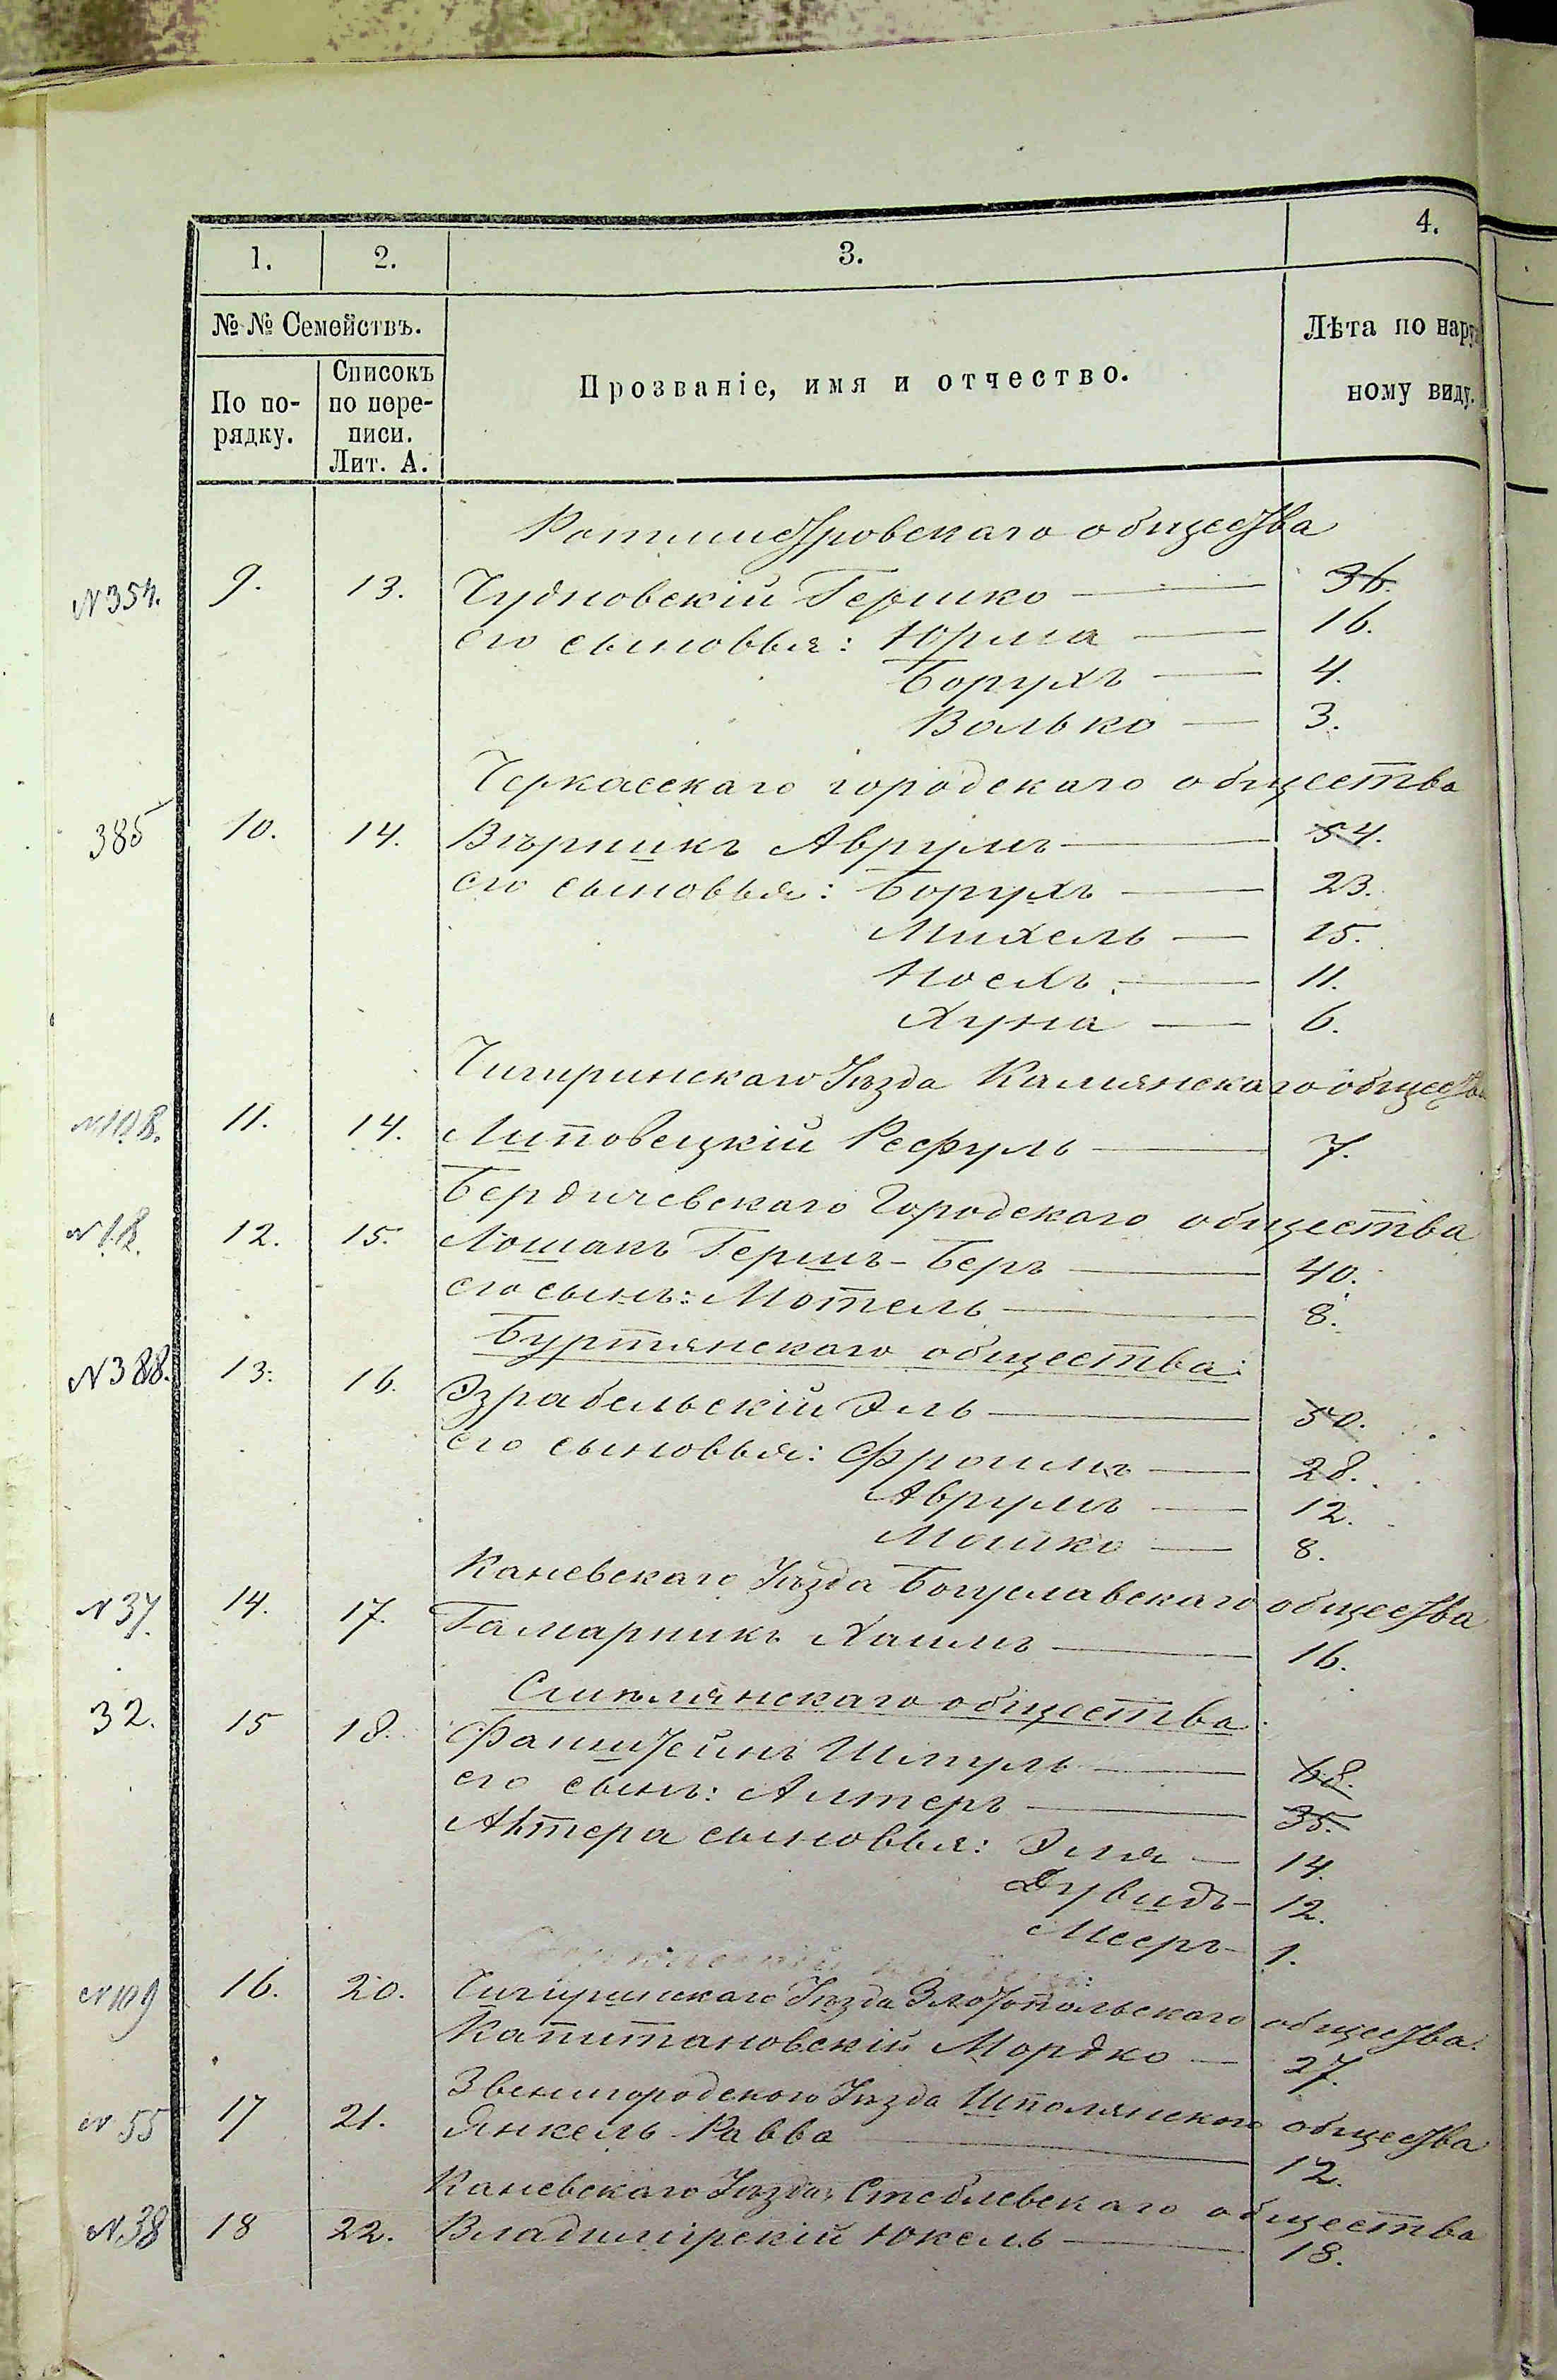 1. 2. 3. 4.
№ № Семействъ. Прозваніе, имя и отчество. Лѣта по нару
ному виду.
По по-
рядку. Списокъ
по пере-
писи.
Лит. А.
Ротмистровскаго общества
N 354. 9. 13. Чудновскій Гершко 36.
его сыновья: Юрма 16.
Борухъ 4.
Волько 3.
Черкасскаго городскаго общества
385 10. 14. Вѣрникъ Аврумъ 54.
его сыновья: Борухъ 23.
Михель 15.
Іосль 11.
Хуна 6.
Чигиринскаго Уѣзда Камянскаго общества
N 108. 11. 14. Липовецкій Рефуль 7.
Бердичевскаго Городскаго общества
N 18. 12. 15. Лошакъ Гершъ-Беръ 40.
его сынъ: Мотель 8.
Буртянскаго общества:
N 388. 13. 16. Эзрабельскій Эль 50.
его сыновья: Фроимъ 28.
Аврумъ 12.
Мошко 8.
Каневскаго Уѣзда Богуславскаго общества
N 37. 14. 17. Гамарникъ Хаимъ 16.
Смѣлянскаго общества
32. 15 18. Файнштейнъ Шмуль 68.
его сынъ: Алтеръ 35.
Алтера сыновья: Эля 14.
Дувидъ 12.
Мееръ 1.
N 109 16. 20. Чигиринскаго Уѣзда Златопольскаго общества:
Капитановскій Мордко 27.
Звенигородскаго Уѣзда Шполянскаго общества
N 55 17 21. Янкель Равва 12.
Каневскаго Уѣзда, Стеблевскаго общества
N 38 18 22. Владимірскій Юкель 18.